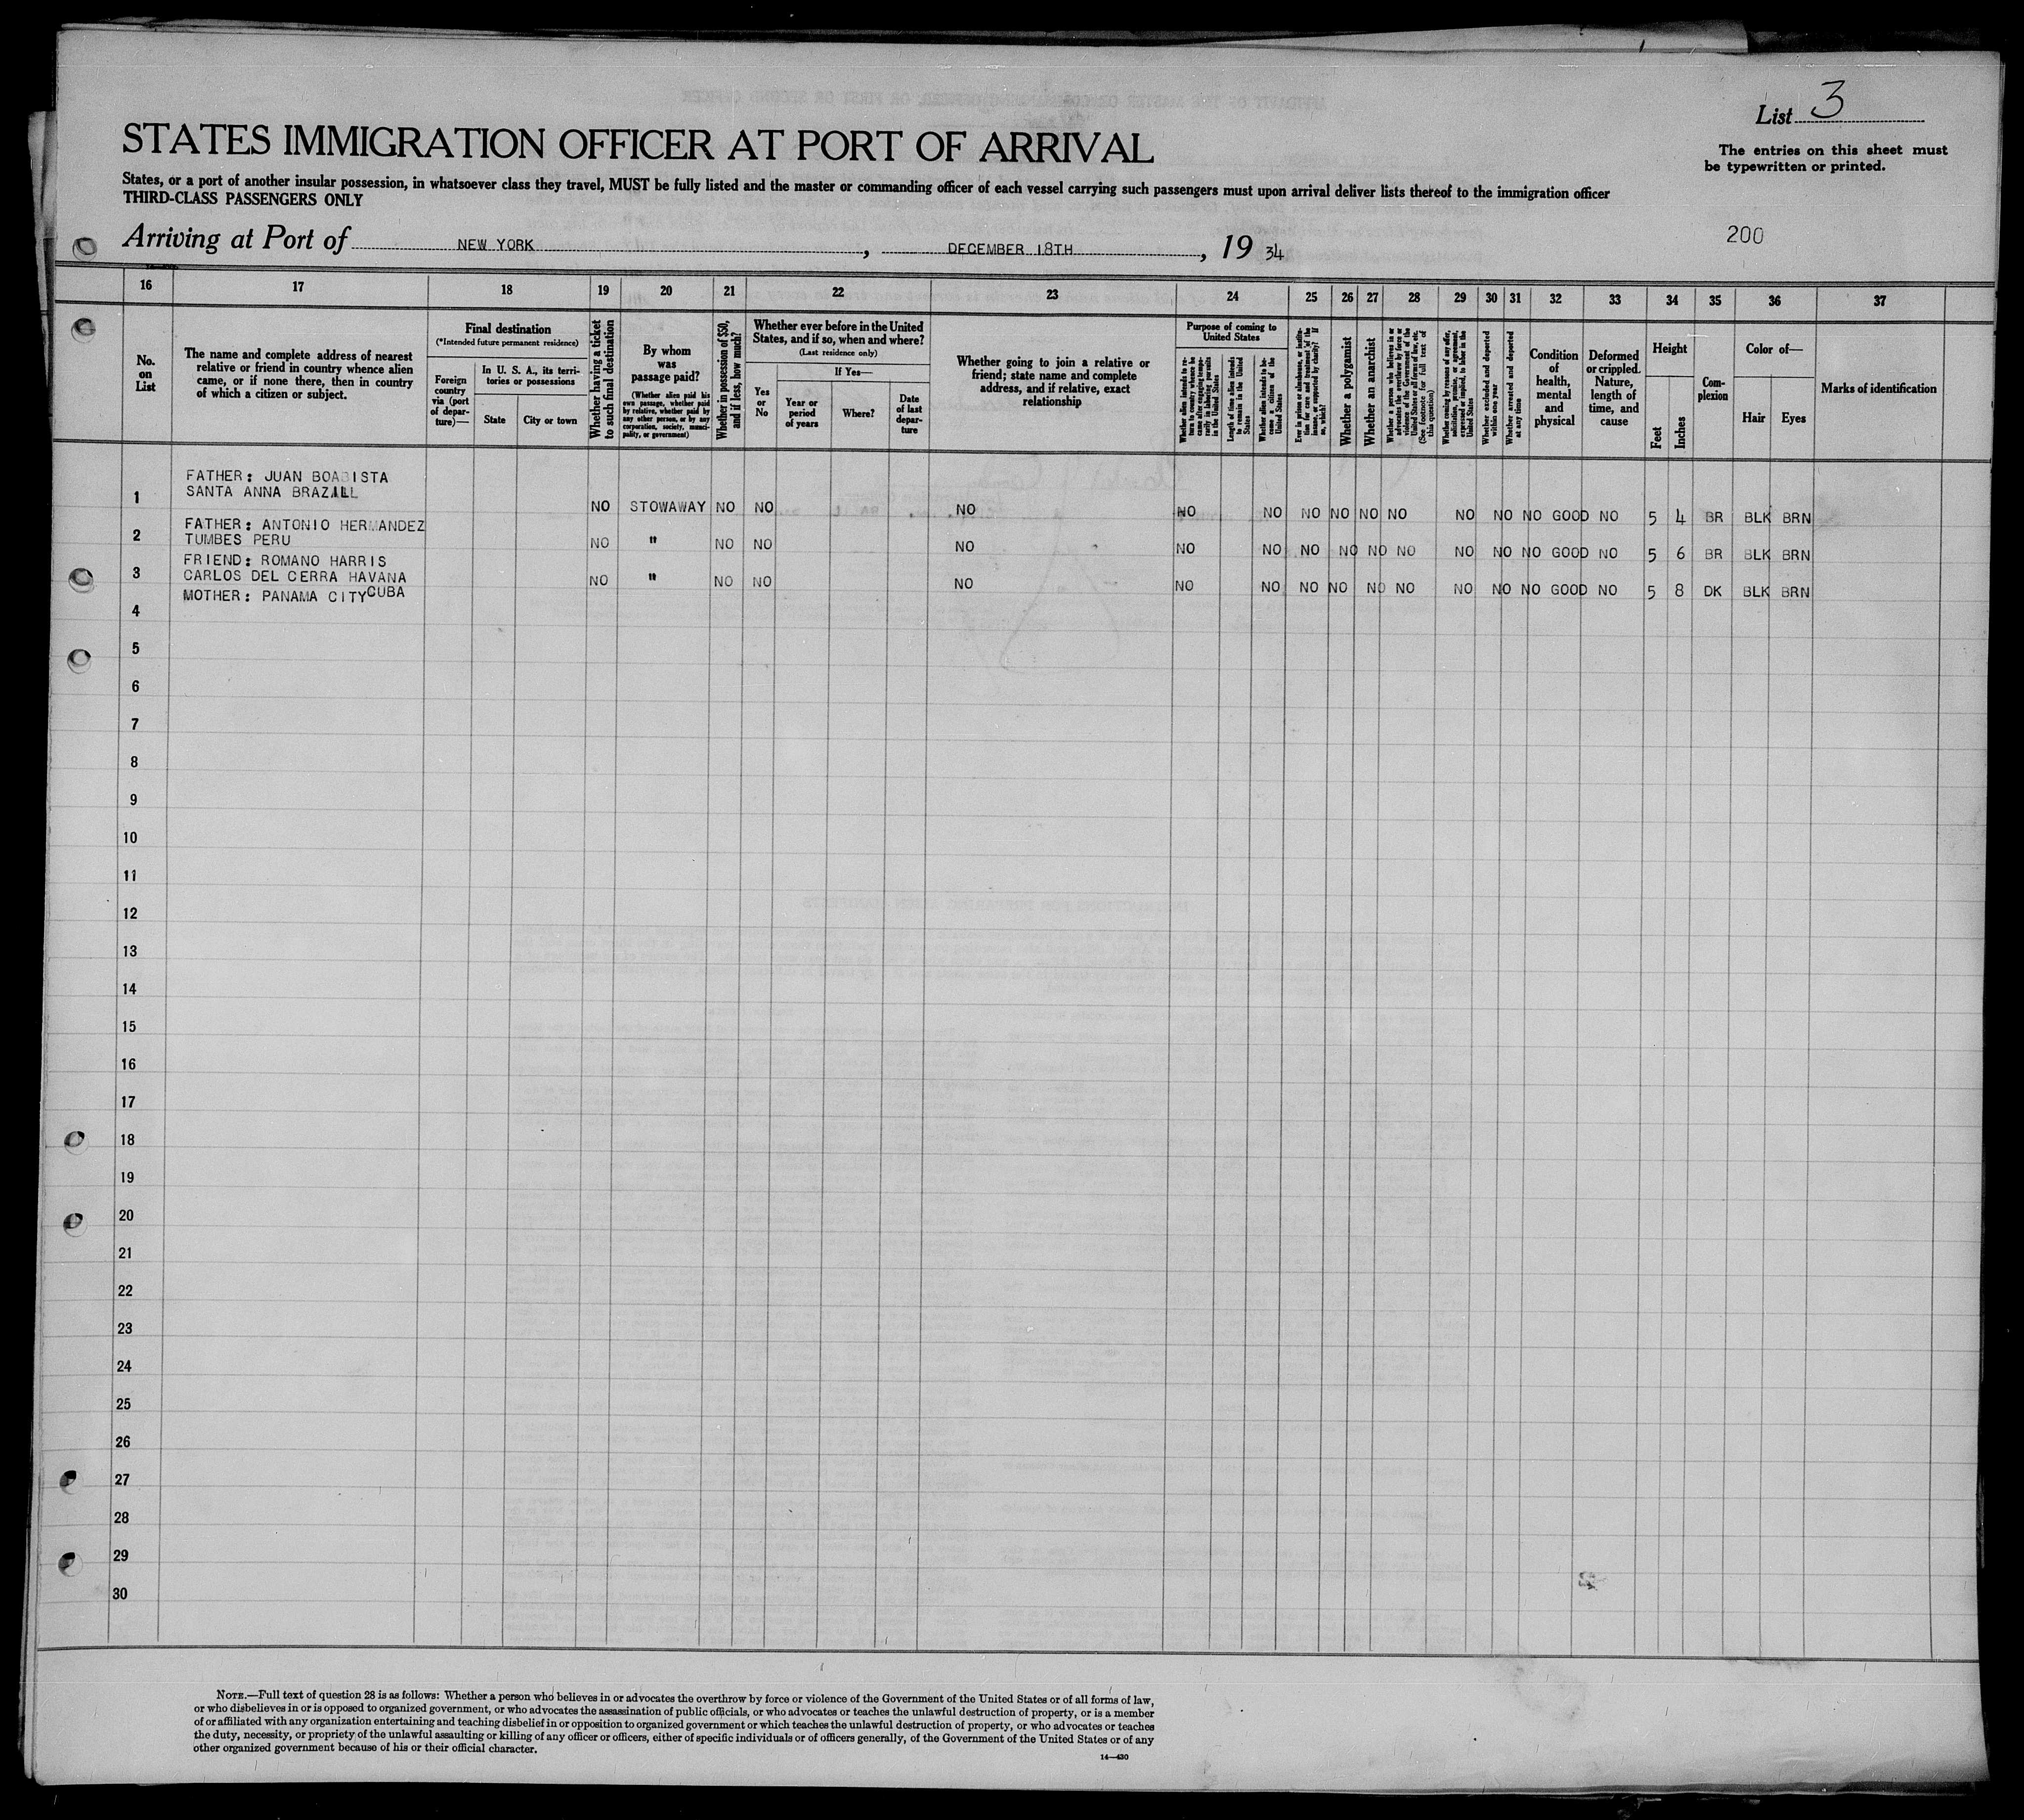 List 3
The entries on this sheet must
be typewritten or printed.
STATES IMMIGRATION OFFICER AT PORT OF ARRIVAL
States, or a port of another insular possession, in whatsoever class they travel, MUST be fully listed and the master or commanding officer of each vessel carrying such passengers must upon arrival deliver lists thereof to the immigration officer
THIRD-CLASS PASSENGERS ONLY
Arriving at Port of NEW YORK, DECEMBER 18TH, 19 34
200
16 17 18 19 20 21 22 23 24 25 26 27 28 29 30 31 32 33 34 35 36 37
No.
on
List
The name and complete address of nearest
relative or friend in country whence alien
came, or if none there, then in country
of which a citizen or subject.
Final destination
(*Intended future permanent residence)
Foreign
country
via (port
of depar-
ture)—
In U. S. A., its terri-
tories or possessions
State
City or town
Whether having a ticket
to such final destination
By whom
was
passage paid?
(Whether alien paid his
own passage, whether paid
by relative, whether paid by
any other person, or by any
corporation, society, munici-
pality, or government)
Whether in possession of $50,
and if less, how much?
Whether ever before in the United
States, and if so, when and where?
(Last residence only)
Yes
or
No
If Yes—
Year or
period
of years
Where?
Date
of last
depar-
ture
Whether going to join a relative or
friend; state name and complete
address, and if relative, exact
relationship
Purpose of coming to
United States
Length of time alien intends
to remain in the United
States
Whether alien intends to be-
come a citizen of the
United States
Whether a polygamist
Whether an anarchist
Whether excluded and deported
within one year
Whether arrested and deported
at any time
Condition
of
health,
mental
and
physical
Deformed
or crippled.
Nature,
length of
time, and
cause
Height
Feet
Inches
Com-
plexion
Color of—
Hair
Eyes
Marks of identification
FATHER: JUAN BOABISTA
SANTA ANNA BRAZILL
1 NO STOWAWAY NO NO NO NO NO NO NO NO NO NO NO NO GOOD NO 5 4 BR BLK BRN
FATHER: ANTONIO HERMANDEZ
TUMBES PERU
2 NO " NO NO NO NO NO NO NO NO NO NO NO NO GOOD NO 5 6 BR BLK BRN
FRIEND: ROMANO HARRIS
CARLOS DEL CERRA HAVANA
CUBA
3 NO " NO NO NO NO NO NO NO NO NO NO NO NO GOOD NO 5 8 DK BLK BRN
MOTHER: PANAMA CITY
4
5
6
7
8
9
10
11
12
13
14
15
16
17
18
19
20
21
22
23
24
25
26
27
28
29
30
NOTE.—Full text of question 28 is as follows: Whether a person who believes in or advocates the overthrow by force or violence of the Government of the United States or of all forms of law,
or who disbelieves in or is opposed to organized government, or who advocates the assassination of public officials, or who advocates or teaches the unlawful destruction of property, or is a member
of or affiliated with any organization entertaining and teaching disbelief in or opposition to organized government or which teaches the unlawful destruction of property, or who advocates or teaches
the duty, necessity, or propriety of the unlawful assaulting or killing of any officer or officers, either of specific individuals or of officers generally, of the Government of the United States or of any
other organized government because of his or their official character.
14—430